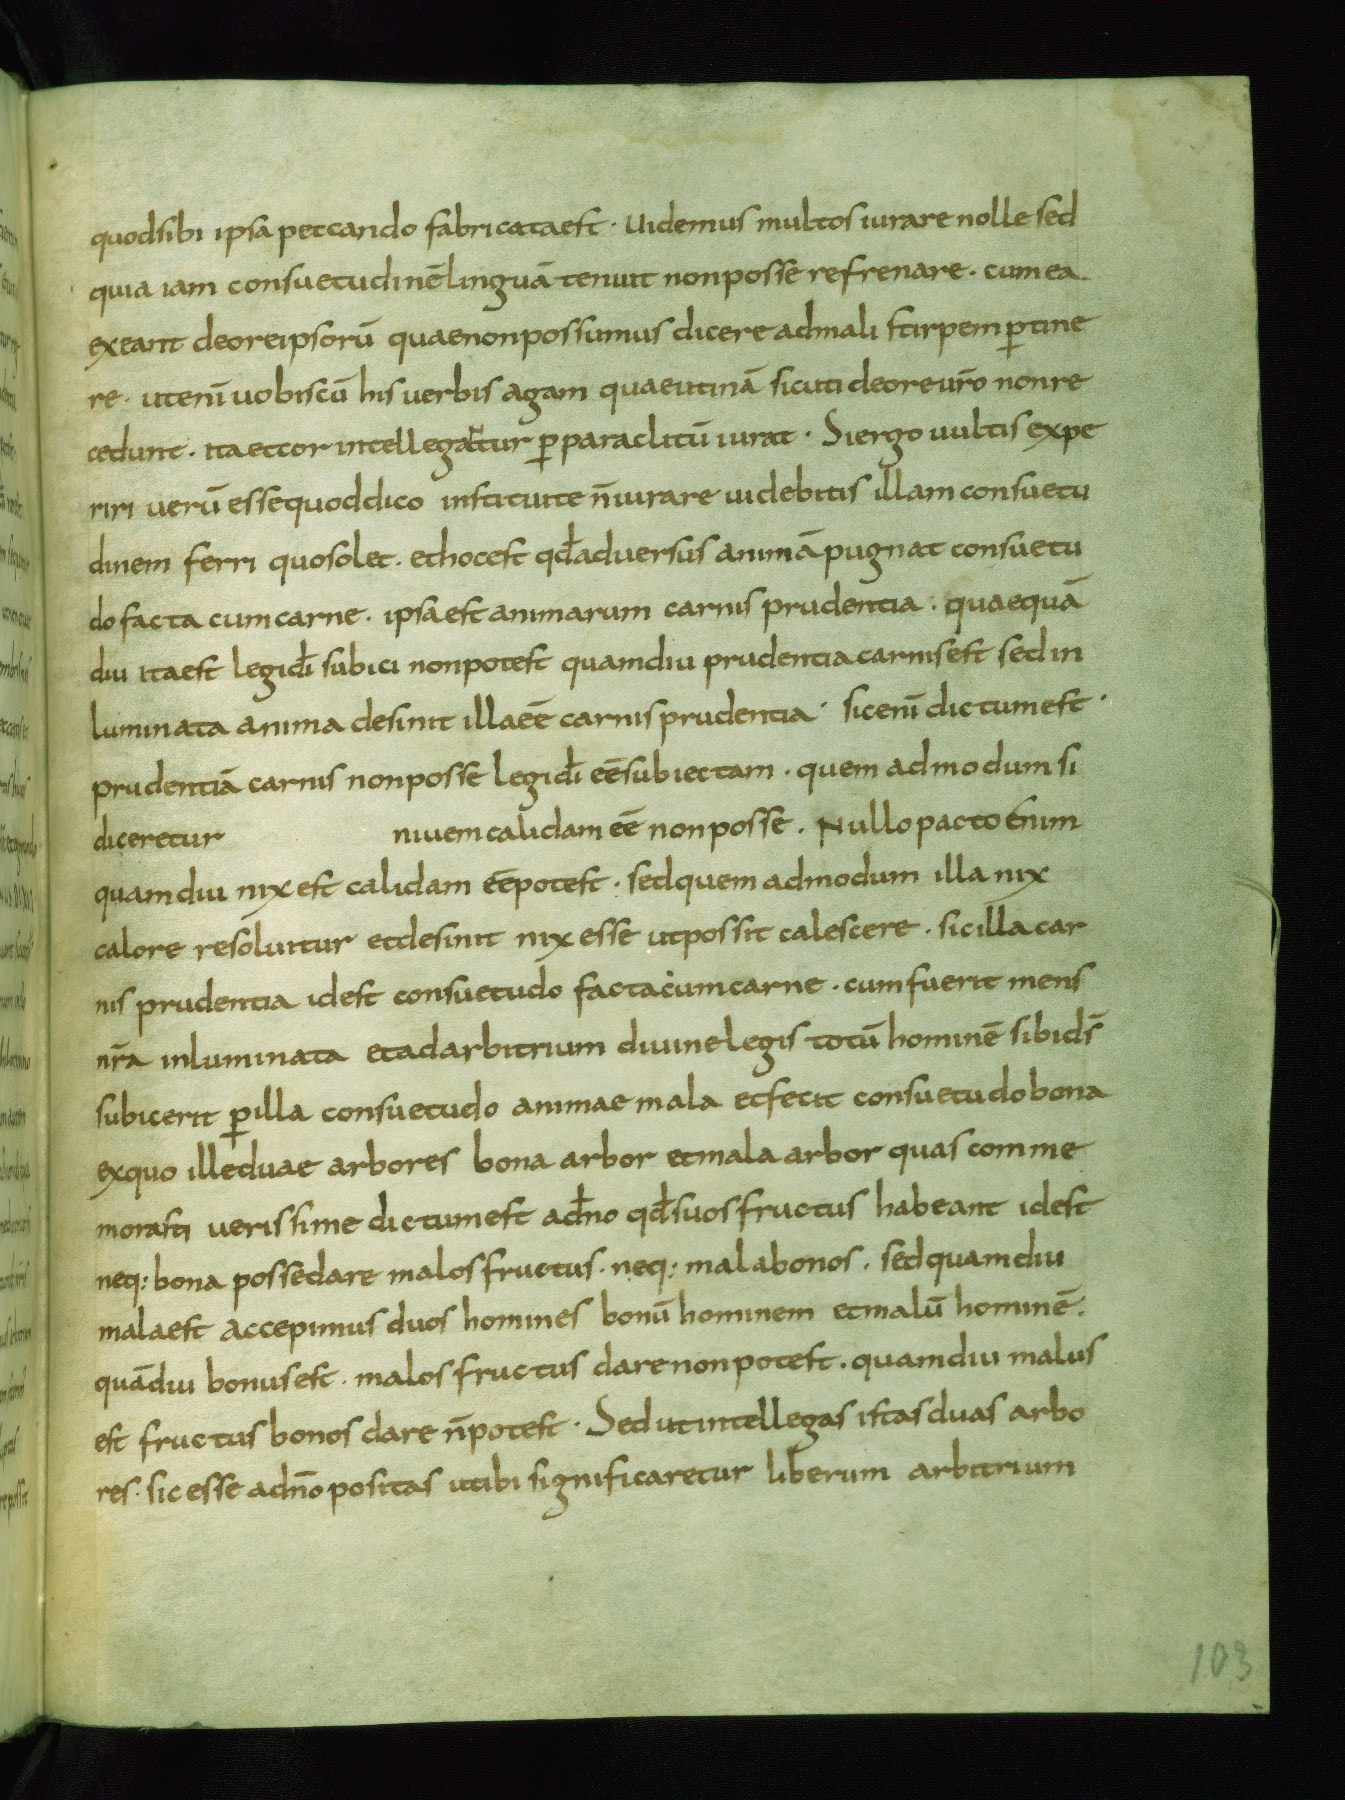 quodsibi ipsa peccando fabricataest · Uidemus multos iurare nolle sed
quia iam consuetudinē linguā tenuit nonposse refrenare · cum ea
exeant deoreipsorū quaenonpossumus dicere admali stirpem p̄tine
re · utenī uobiscū his uerbis agam quaeutinā sicuti deoreur̄o nonre
cedunt · ita etcor intellegatur p̄paraclitū iurat · Siergo uultis expe
riri uerū essequoddico instituite n̄iurare uidebitis illam consuetu
dinem ferri quosolet · ethocest qđaduersus animā pugnat consuetu
do facta cumcarne · ipsaest animarum carnis prudentia · quaequā
diu itaest legidī subici nonpotest quamdiu prudentia carnisest sed in
luminata anima desinit illaeē carnis prudentia · sicenī dictumest ·
prudentiā carnis nonposse legidī eēsubiectam · quem admodum si
diceretur niuem calidam eē nonposse . Nullopacto Enim
quamdiu nix est calidam eēpotest · sedquem admodum illa nix
calore resoluitur etdesinit nix esse utpossit calescere · sicilla car
nis prudentia idest consuetudo factacumcarne · cumfuerit mens
nr̄a inluminata etadarbitrium diuinelegis totū hominē sibids̄
subicerit p̄illa consuetudo animae mala etfecit consuetudobona
exquo illeduae arbores bona arbor etmala arbor quas comme
morasti uerissime dictumest adn̄o qđsuosfructus habeant idest
neq: bona possedare malosfructus · neq: malabonos · sedquamdiu
malaest accepimus duos homines bonū hominem etmalū hominē .
quādiu bonusest · malosfructus darenonpotest · quamdiu malus
est fructus bonos dare n̄potest · Sed utintellegas istas duas arbo
res · sic esse adn̄o positas utibi significaretur liberum arbitrium
103